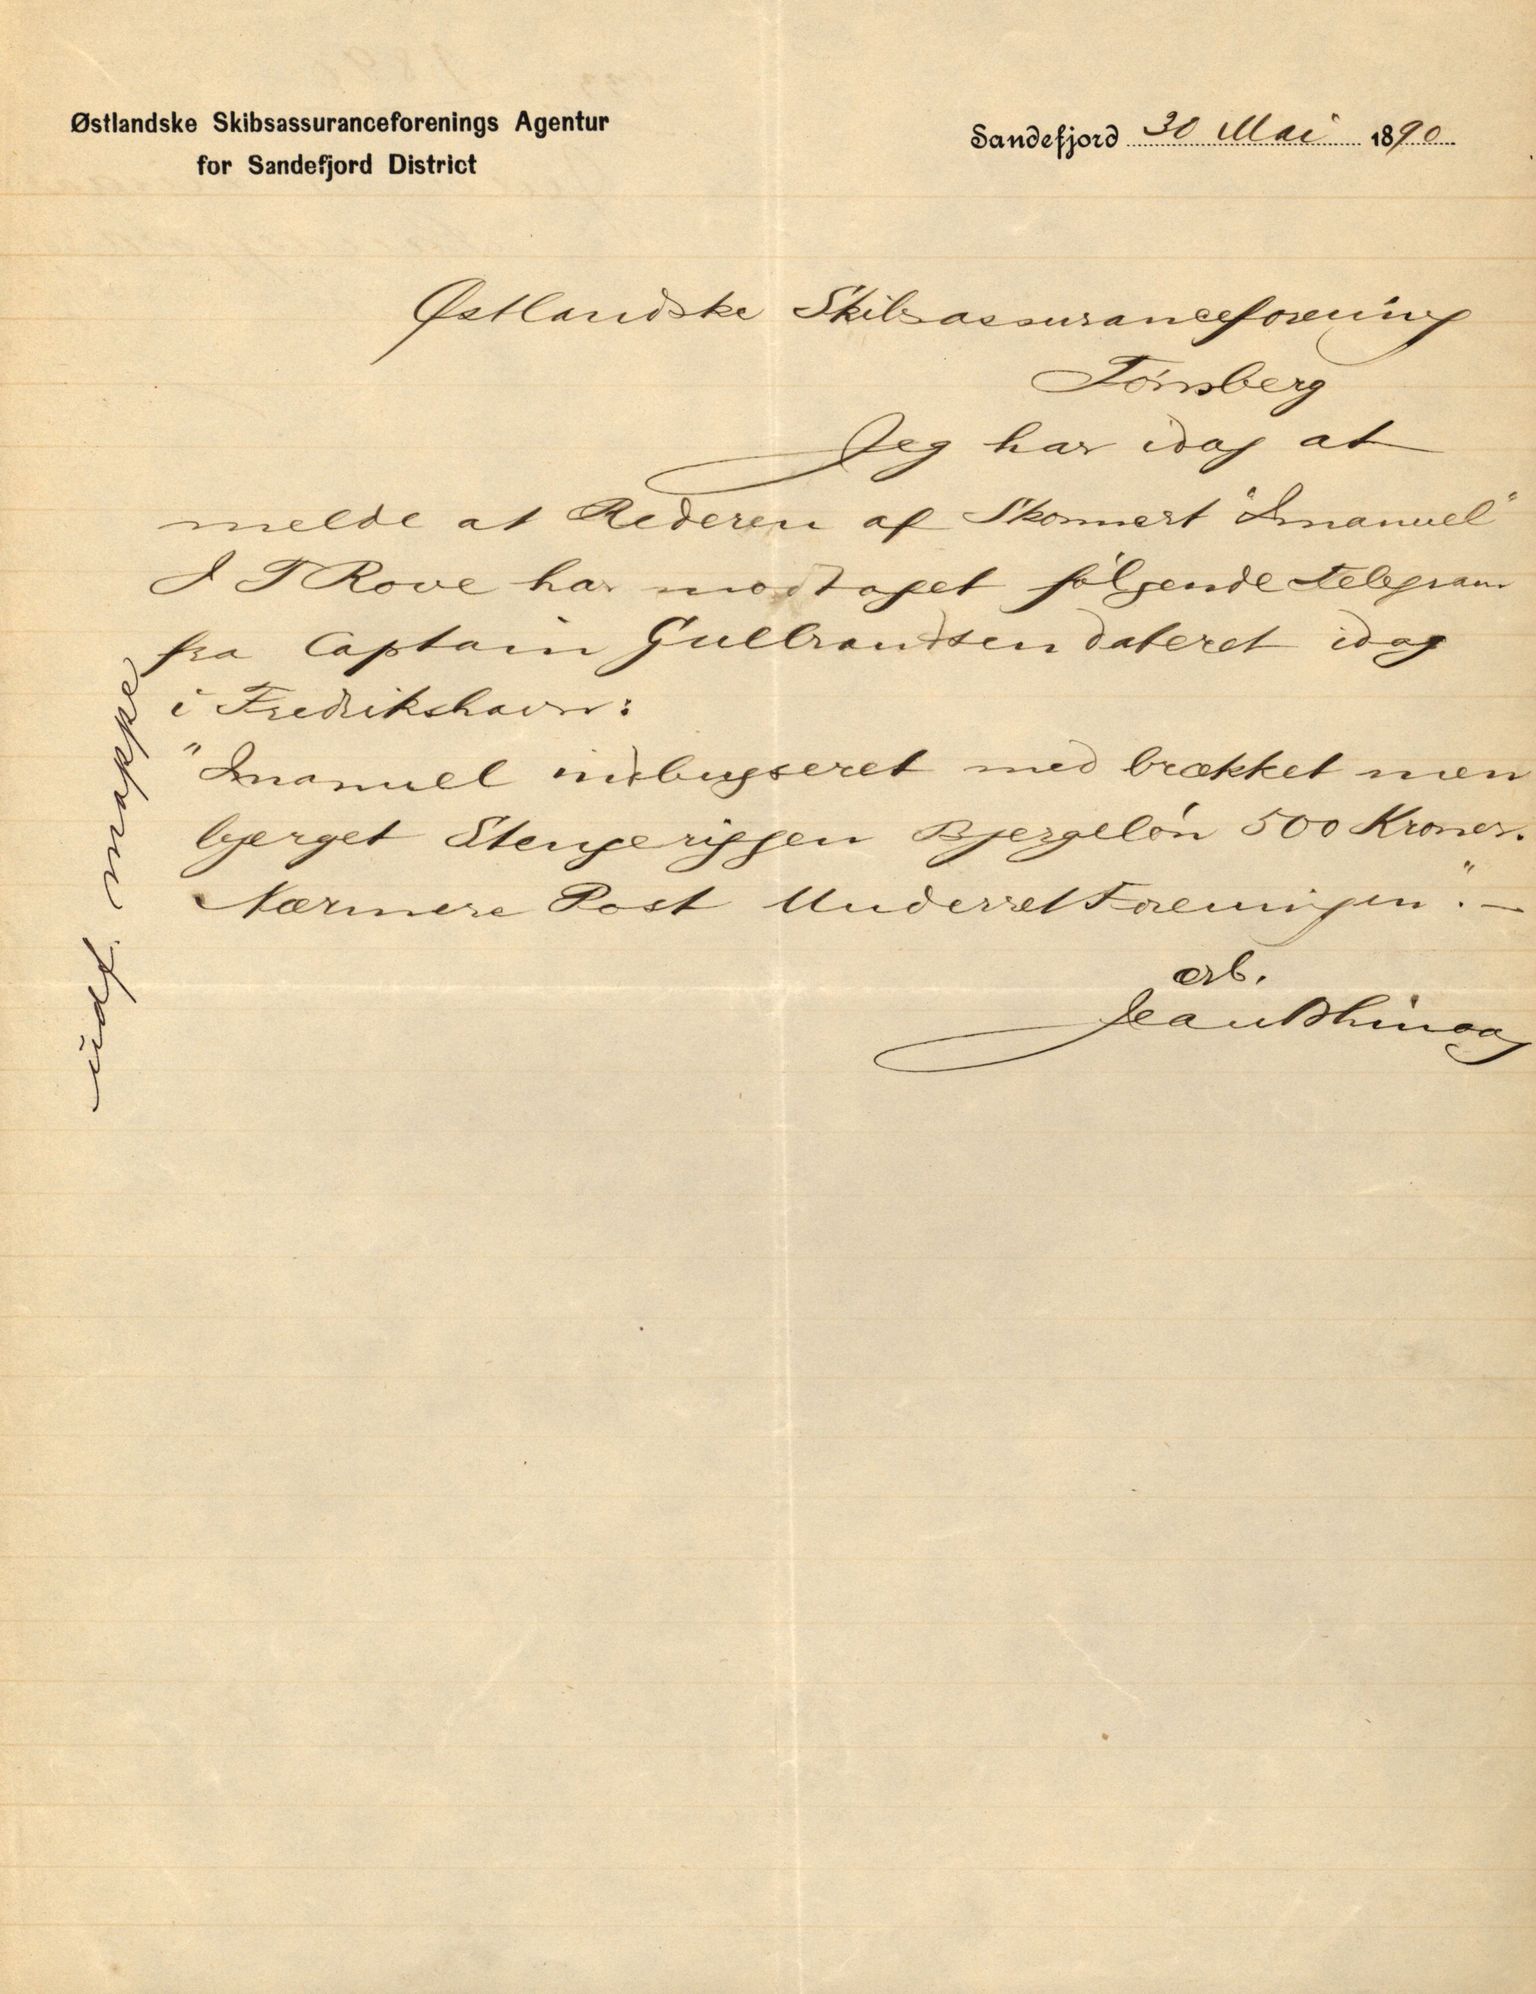 Østlandske Skibsassuranceforenings Agentur
for Sandefjord District
Sandefjord 30 Mai 1890
Østlandske Skibsassuranceforening
Tönsberg
Jeg har idag at
melde at Rederen af Skonnert "Imanuel"
J T Rove har modtaget følgende Telegram
fra Captain Gulbrandsen dateret idag
i Fredrikshavn:
"Imanuel indbugseret med brækket men
bjerget Stengeriggen Bjergelön 500 Kroner.
Nærmere Post Underret Foreningen". —
ærb.
Jean Bhinaa
indf. mappe